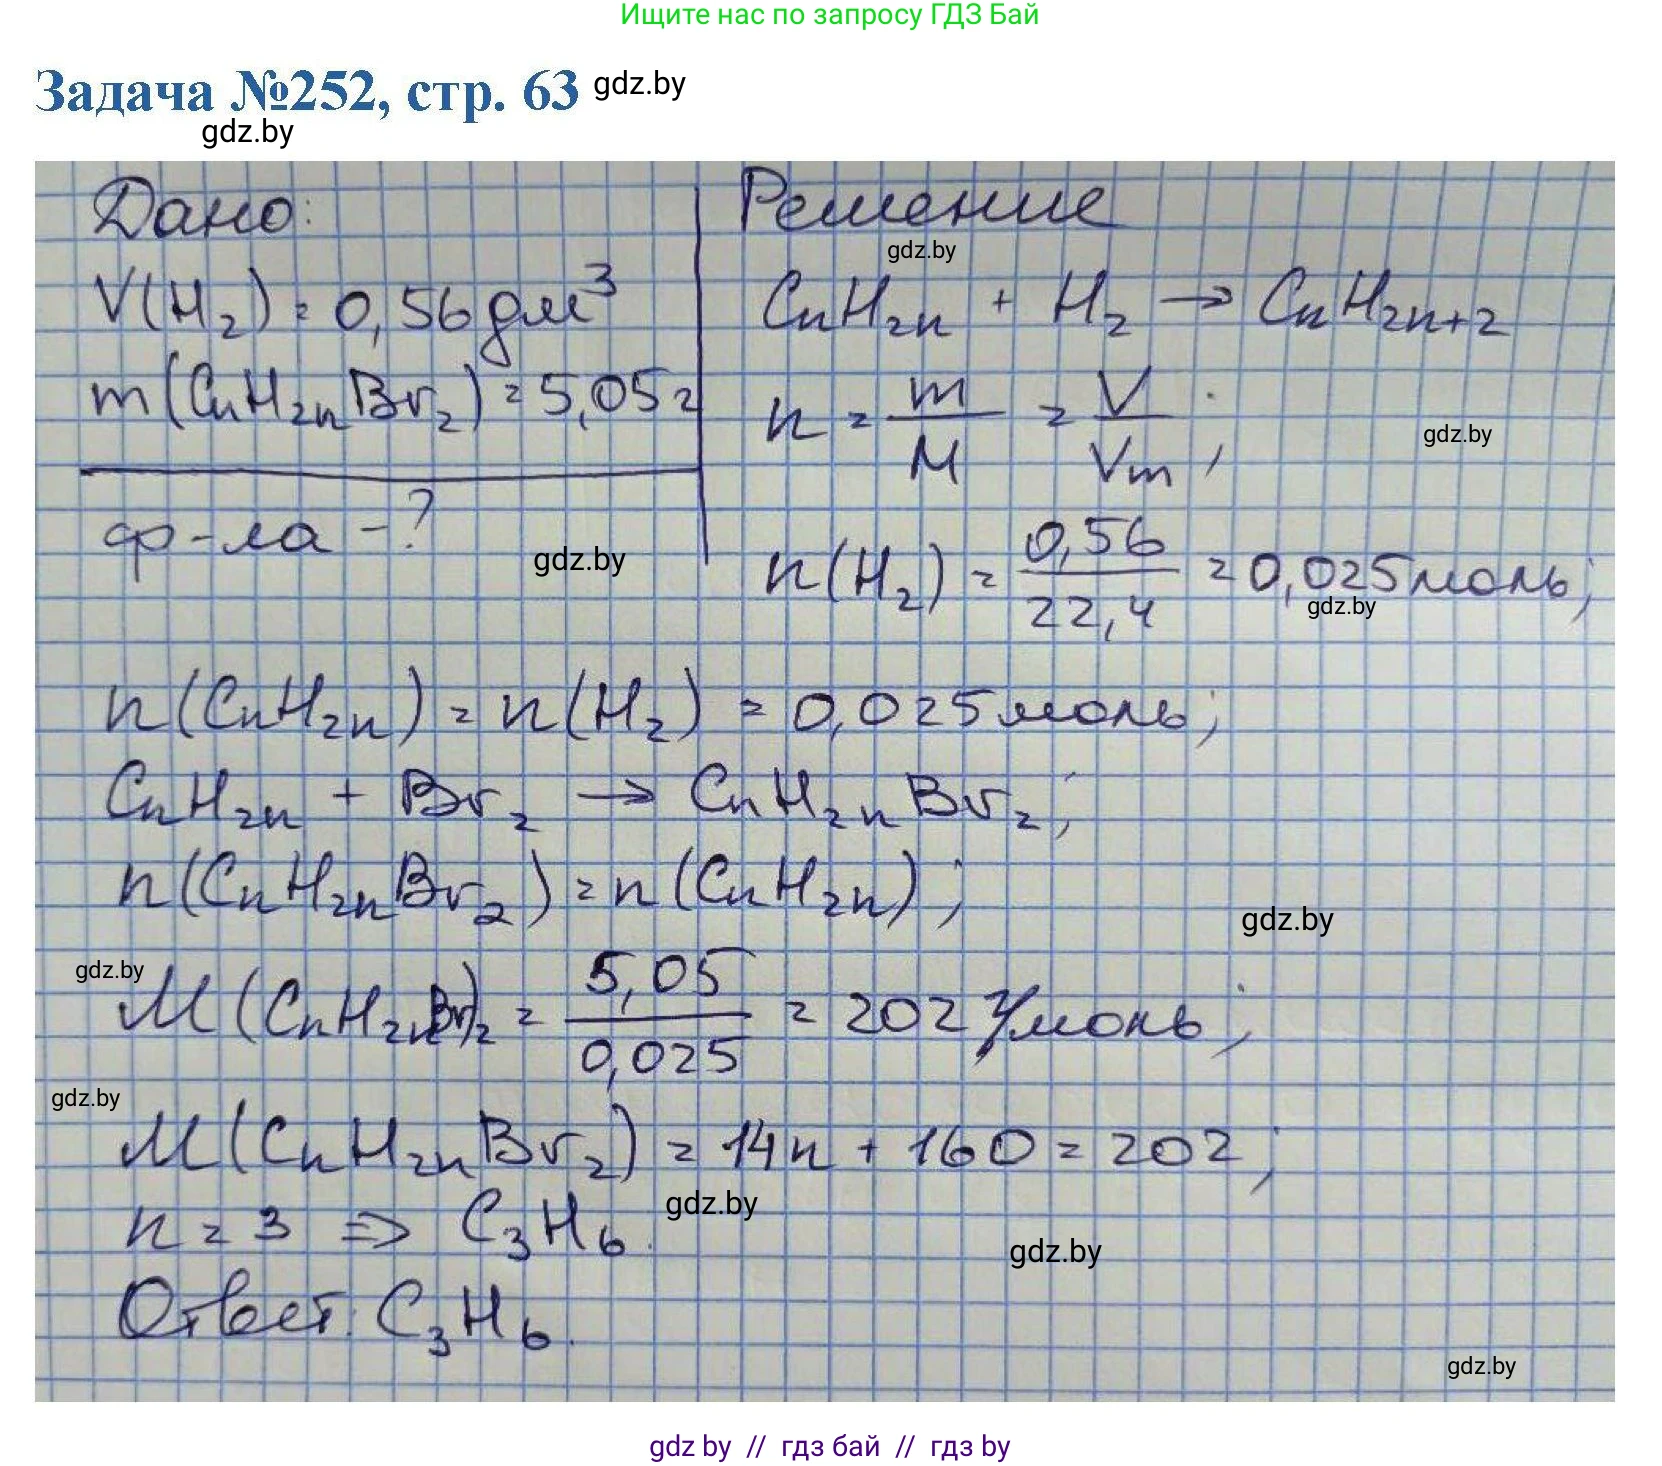 Ищите нас по запросу ГДЗ Бай
Задача №252, стр. 63 gdz.by
gdz.by
Дано:
V(H₂) = 0,56 дм³
m(CnH₂nBr₂) = 5,05 г
ф-ла - ?
gdz.by
Решение
gdz.by
CnH₂n + H₂ → CnH₂n+₂
n = m/M = V/Vm;
gdz.by
n(H₂) = 0,56/22,4 = 0,025 моль;
gdz.by
n(CnH₂n) = n(H₂) = 0,025 моль;
CnH₂n + Br₂ → CnH₂nBr₂;
n(CnH₂nBr₂) = n(CnH₂n);
gdz.by
gdz.by
M(CnH₂nBr)₂ = 5,05/0,025 = 202 г/моль;
gdz.by
M(CnH₂nBr₂) = 14n + 160 = 202;
gdz.by
n = 3 => C₃H₆.
gdz.by
Ответ: C₃H₆.
gdz.by
gdz by // гдз бай // гдз by